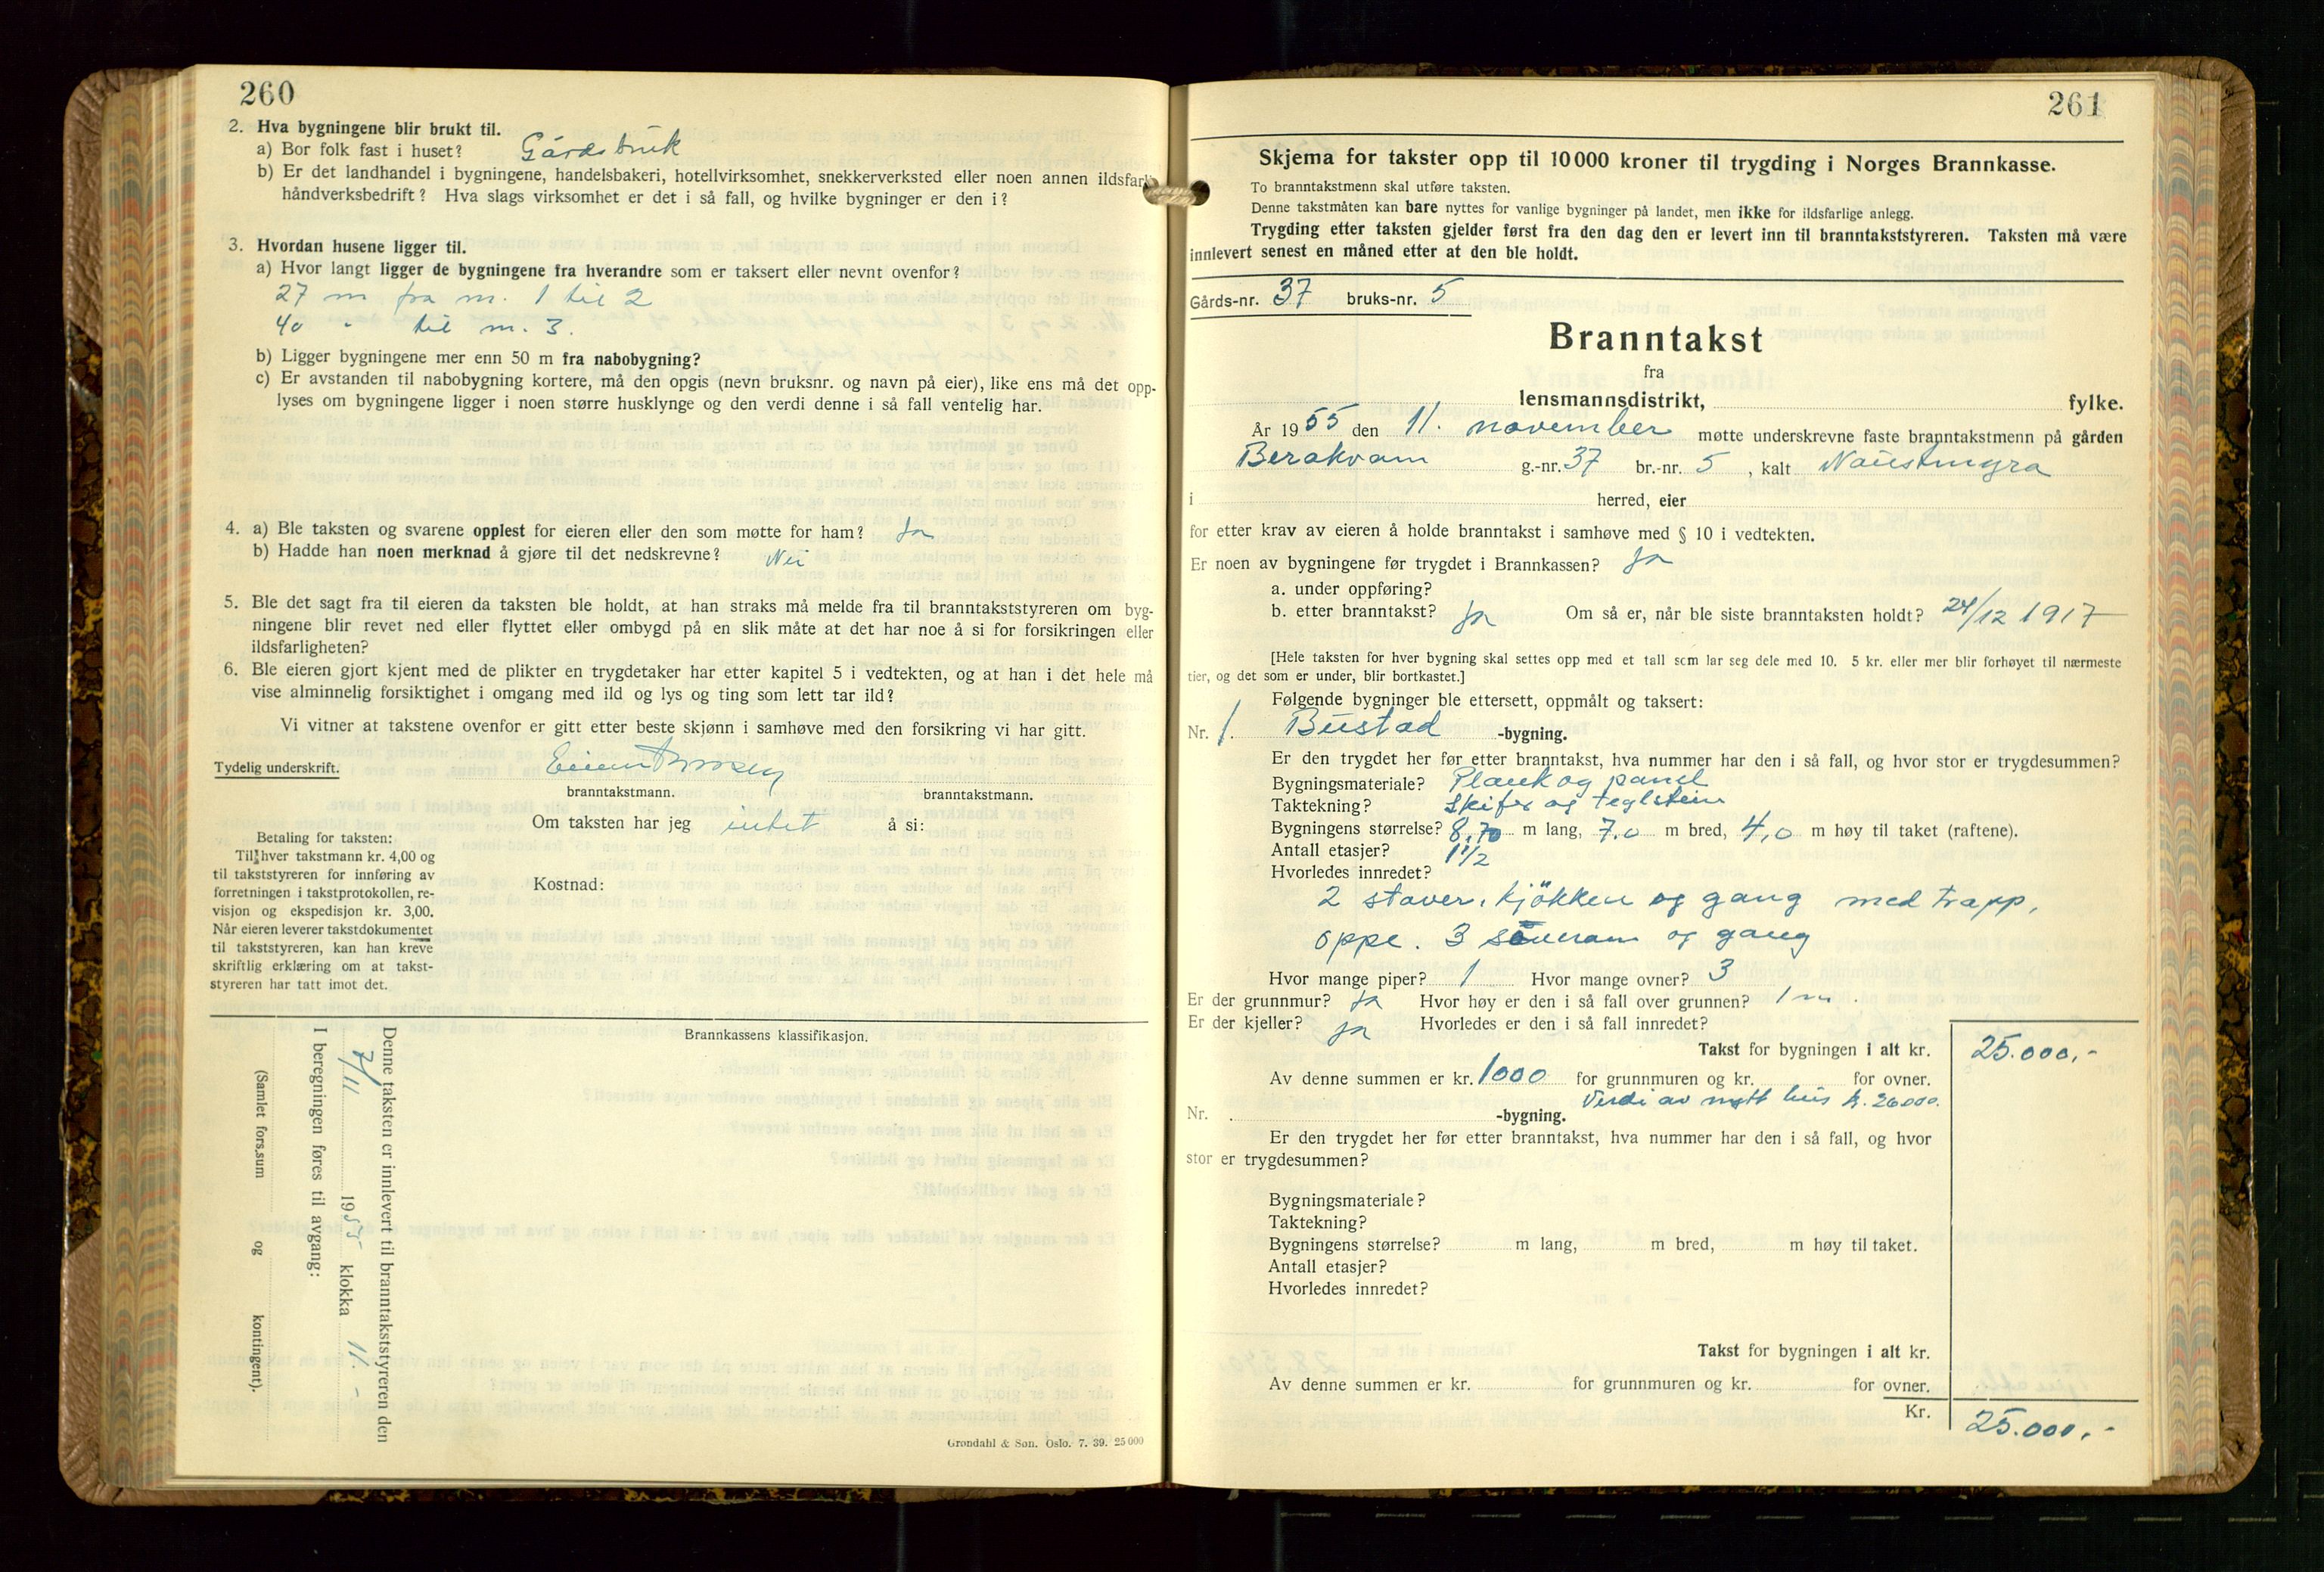 260
2. Hva bygningene blir brukt til.
a) Bor folk fast i huset? Gårdsbruk
b) Er det landhandel i bygningene, handelsbakeri, hotellvirksomhet, snekkerverksted eller noen annen ildsfarl
håndverksbedrift? Hva slags virksomhet er det i så fall, og hvilke bygninger er den i?
3. Hvordan husene ligger til.
a) Hvor langt ligger de bygningene fra hverandre som er taksert eller nevnt ovenfor?
27 m fra m. 1 til 2
40 " til m. 3.
b) Ligger bygningene mer enn 50 m fra nabobygning?
c) Er avstanden til nabobygning kortere, må den opgis (nevn bruksnr. og navn på eier), like ens må det opp-
lyses om bygningene ligger i noen større husklynge og den verdi denne i så fall ventelig har.
4. a) Ble taksten og svarene opplest for eieren eller den som møtte for ham? Ja
b) Hadde han noen merknad å gjøre til det nedskrevne? Nei
5. Ble det sagt fra til eieren da taksten ble holdt, at han straks må melde fra til branntakststyreren om byg-
ningene blir revet ned eller flyttet eller ombygd på en slik måte at det har noe å si for forsikringen eller
ildsfarligheten?
6. Ble eieren gjort kjent med de plikter en trygdetaker har etter kapitel 5 i vedtekten, og at han i det hele må
vise alminnelig forsiktighet i omgang med ild og lys og ting som lett tar ild?
Vi vitner at takstene ovenfor er gitt etter beste skjønn i samhøve med den forsikring vi har gitt.
Tydelig underskrift.
branntakstmann. branntakstmann.
Om taksten har jeg intet å si:
Betaling for taksten:
Til hver takstmann kr. 4,00 og
til takststyreren for innføring av
forretningen i takstprotokollen, re-
visjon og ekspedisjon kr. 3,00.
Når eieren leverer takstdokumentet
til takststyreren, kan han kreve
skriftlig erklæring om at takst-
styreren har tatt imot det.
Kostnad:
Brannkassens klassifikasjon.
Denne taksten er innlevert til branntakststyreren den
7/11 1955 klokka 11. -
I beregningen føres til avgang:
(Samlet fors.sum og kontingent).
Grøndahl & Søn. Oslo. 7. 39. 25 000
261
Skjema for takster opp til 10 000 kroner til trygding i Norges Brannkasse.
To branntakstmenn skal utføre taksten.
Denne takstmåten kan bare nyttes for vanlige bygninger på landet, men ikke for ildsfarlige anlegg.
Trygding etter taksten gjelder først fra den dag den er levert inn til branntakststyreren. Taksten må være
innlevert senest en måned etter at den ble holdt.
Gårds-nr. 37 bruks-nr. 5
Branntakst
fra
lensmannsdistrikt, fylke.
År 1955 den 11. november møtte underskrevne faste branntakstmenn på gården
Berakvam g.-nr. 37 br.-nr. 5, kalt Naustmyra
i herred, eier
for etter krav av eieren å holde branntakst i samhøve med § 10 i vedtekten.
Er noen av bygningene før trygdet i Brannkassen? Ja
a. under oppføring?
b. etter branntakst? Ja Om så er, når ble siste branntaksten holdt? 24/12 1917
[Hele taksten for hver bygning skal settes opp med et tall som lar seg dele med 10. 5 kr. eller mer blir forhøyet til nærmeste
tier, og det som er under, blir bortkastet.]
Følgende bygninger ble ettersett, oppmålt og taksert:
Nr. 1. Bustad -bygning.
Er den trygdet her før etter branntakst, hva nummer har den i så fall, og hvor stor er trygdesummen?
Bygningsmateriale? Plank og panel
Taktekning? Skifer og teglstein
Bygningens størrelse? 8,70 m lang, 7.0 m bred, 4,0 m høy til taket (raftene).
Antall etasjer? 1 1/2
Hvorledes innredet?
2 stover, kjökken og gang med trapp,
oppe. 3 soverom og gang
Hvor mange piper? 1 Hvor mange ovner? 3
Er der grunnmur? Ja Hvor høy er den i så fall over grunnen? 1 m.
Er der kjeller? Ja Hvorledes er den i så fall innredet?
Takst for bygningen i alt kr. 25.000,-
Av denne summen er kr. 1000 for grunnmuren og kr. for ovner.
Verdi av nytt hus kr. 26000.
Nr. -bygning.
Er den trygdet her før etter branntakst, hva nummer har den i så fall, og hvor
stor er trygdesummen?
Bygningsmateriale?
Taktekning?
Bygningens størrelse? m lang, m bred, m høy til taket.
Antall etasjer?
Hvorledes innredet?
Takst for bygningen i alt kr.
Av denne summen er kr. for grunnmuren og kr. for ovner.
Kr. 25.000,-